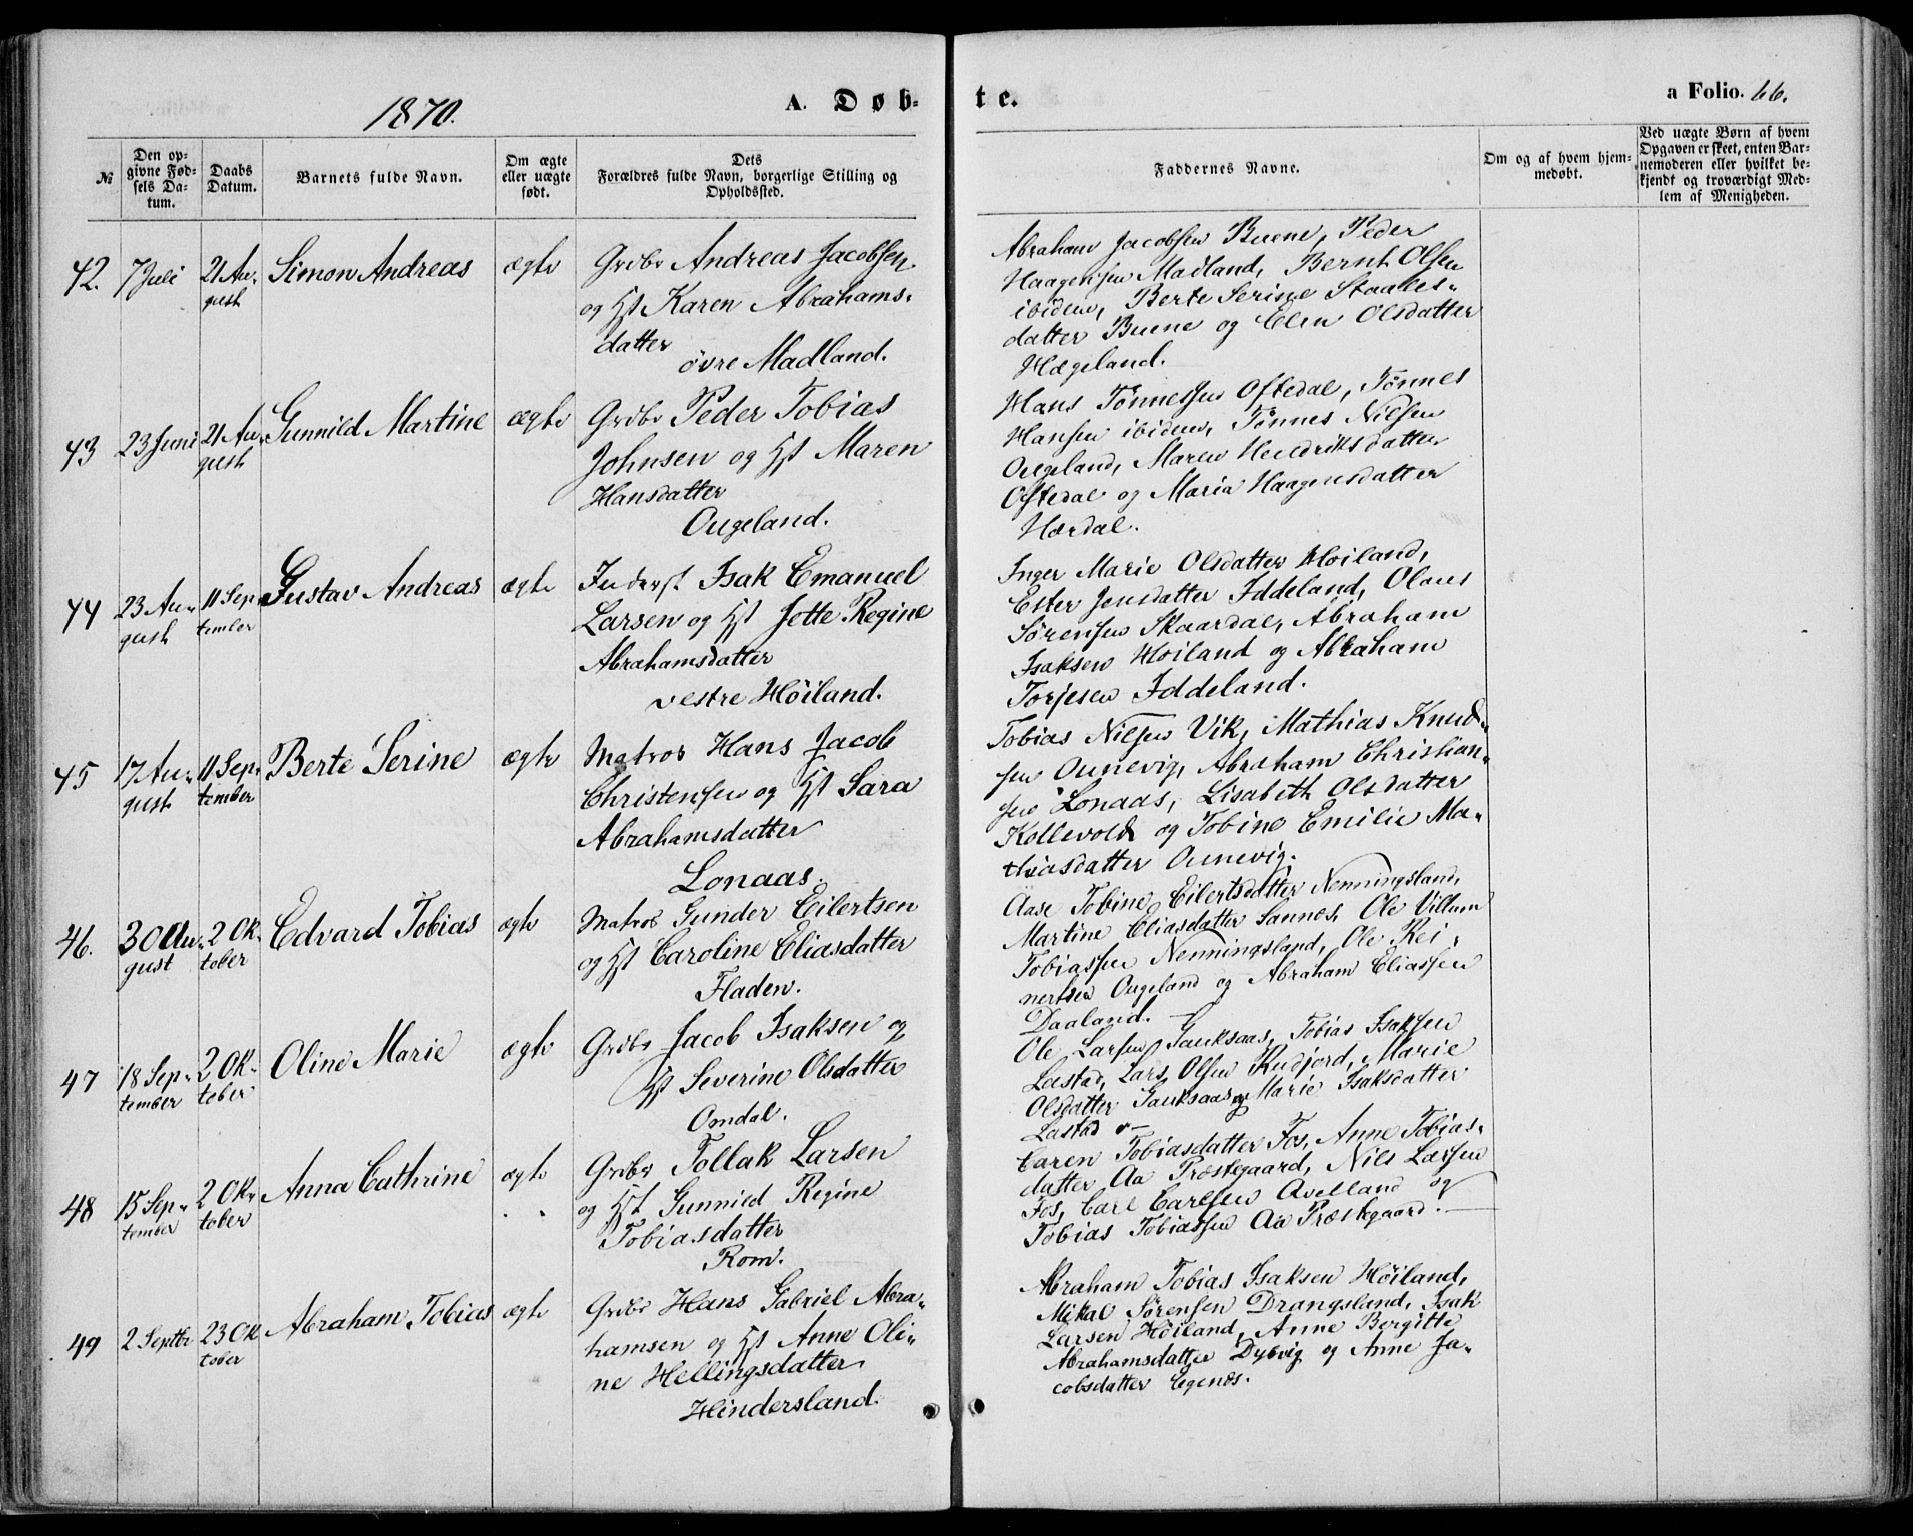 1870.
A. Døb-
te.
a Folio. 66.
№
Den op-
givne Fød-
sels Da-
tum.
Daabs
Datum.
Barnets fulde Navn.
Om ægte
eller uægte
født.
Dets
Forældres fulde Navn, borgerlige Stilling og
Opholdssted.
Faddernes Navne.
Om og af hvem hjem-
medøbt.
Ved uægte Børn af hvem
Opgaven er skeet, enten Bar-
nemoderen eller hvilket be-
kjendt og troværdigt Med-
lem af Menigheden.
42.
7 Juli
21 Au-
gust
Simon Andreas
ægte
Grdbr Andreas Jacobsen
og Hst Karen Abrahams-
datter
övre Madland.
Abraham Jacobsen Buene, Peder
Haagensen Madland, Bernt Olsen
ibidem, Berte Serine Staales-
datter Buene og Elen Olsdatter
Hægeland.
43
23 Juni
21 Au-
gust
Gunnild Martine
ægte
Grdbr Peder Tobias
Johnsen og Hst Maren
Hansdatter
Ougeland.
Hans Tönnessen Oftedal, Tönnes
Hansen ibidem, Tönnes Nilsen
Ougeland, Maren Hendriksdatter
Oftedal og Maria Haagensdatter
Hærdal.
44
23 Au-
gust
11 Sep-
tember
Gustav Andreas
ægte
Inderst Isak Emanuel
Larsen og Hst Jotte Regine
Abrahamsdatter
vestre Höiland.
Inger Marie Olsdatter Höiland,
Ester Jensdatter Iddeland, Olaus
Sörensen Skaardal, Abraham
Isaksen Höiland og Abraham
Torjesen Iddeland.
45
17 Au-
gust
11 Sep-
tember
Berte Serine
ægte
Matros Hans Jacob
Christensen og Hst Sara
Abrahamsdatter
Lonaas.
Tobias Nilsen Vik, Mathias Knud-
sen Ounevig, Abraham Christian-
sen Lonaas, Lisabeth Olsdatter
Kollevold og Tobine Emilie Ma-
thiasdatter Ounevig.
46.
30 Au-
gust
2 Ok-
tober
Edvard Tobias
ægte
Matros Gunder Eilertsen
og Hst Caroline Eliasdatter
Fladen.
Aase Tobine Eilertsdatter Nenningsland,
Martine Eliasdatter Sannes, Ole Villum
Tobiassen Nenningsland, Ole Rei-
nertsen Ougeland og Abraham Eliassen
Daaland.
47
18 Sep-
tember
2 Ok-
tober
Oline Marie
ægte
Grdbr Jacob Isaksen og
Hst Severine Olsdatter
Omdal.
Ole Larsen Gauksaas, Tobias Isaksen
Læstad, Lars Olsen Rudjord, Marie
Olsdatter Gauksaas og Marie Isaksdatter
Lastad
48
15 Sep-
tember
2 Ok-
tober
Anna Cathrine
ægte
Grdbr Tollak Larsen
og Hst Gunnild Regine
Tobiasdatter
Rom.
Caren Tobiasdatter Fos, Anne Tobias-
datter Aa Præstegaard, Nils Larsen
Fos, Carl Carlsen Avelland og
Tobias Tobiassen Aa Præstegaard.
49
2 Septbr
23 Ok
tober
Abraham Tobias
ægte
Grdbr Hans Gabriel Abra-
hamsen og Hst Anne Oli-
ne Hellingsdatter
Hindersland.
Abraham Tobias Isaksen Höiland,
Mikal Sörensen Drangsland, Isak
Larsen Höiland, Anne Bergitte
Abrahamsdatter Dybvig og Anne Ja-
cobsdatter Egenæs.